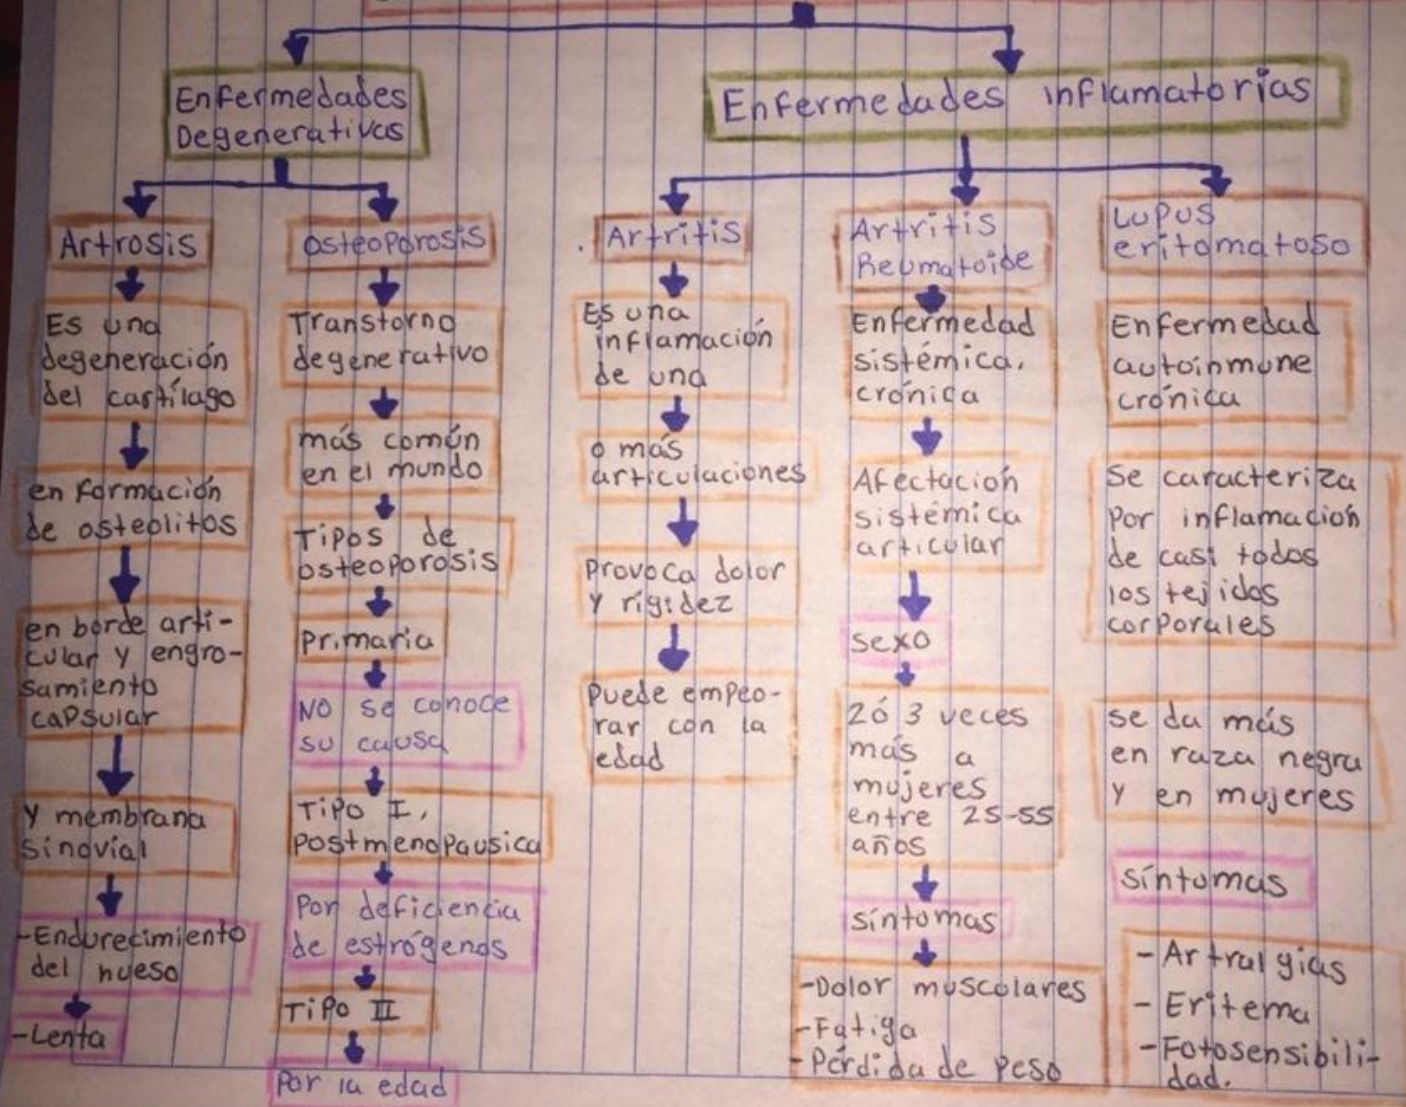 Enfermedades
Degenerativas
Enfermedades inflamatorias
Artrosis
Es una
degeneración
del cartílago
en formación
de osteolitos
en borde arti-
cular y engro-
samiento
capsular
y membrana
sinovial
-Endurecimiento
del hueso
-Lenta
osteoporosis
Transtorno
degenerativo
más común
en el mundo
Tipos de
osteoporosis
Primaria
No se conoce
su causa
Tipo I,
Postmenopausica
Por deficiencia
de estrógenos
Tipo II
Por la edad
Artritis
Es una
inflamación
de una
o más
articulaciones
Provoca dolor
y rigidez
Puede empeo-
rar con la
edad
Artritis
Reumatoide
Enfermedad
sistémica,
crónica
Afectación
sistémica
articular
sexo
2ó 3 veces
más a
mujeres
entre 25-55
años
síntomas
-Dolor muscolares
-Fatiga
-Pérdida de peso
Lupus
eritomatoso
Enfermedad
autoinmune
crónica
Se caracteriza
Por inflamación
de casi todos
los tejidos
corporales
se da más
en raza negra
y en mujeres
síntomas
- Artralgias
- Eritema
-Fotosensibili-
dad.